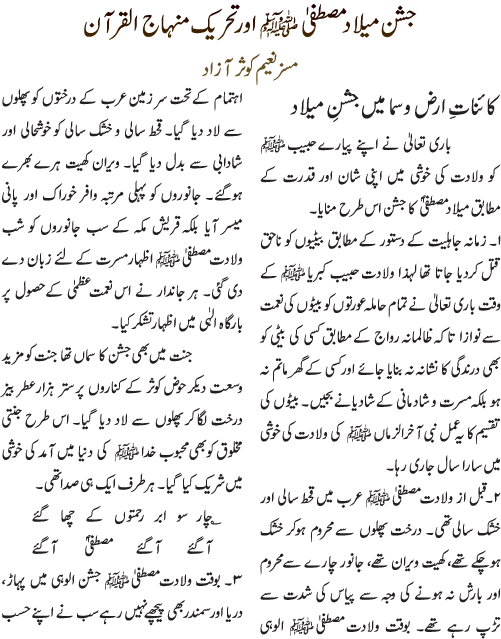 جشن میلاد مصطفیٰ ﷺ اور تحریک منہاج القرآن
مسز نعیم کوثر آزاد
کائناتِ ارض و سما میں جشنِ میلاد
باری تعالیٰ نے اپنے پیارے حبیب ﷺ
کو ولادت کی خوشی میں اپنی شان اور قدرت کے
مطابق میلاد مصطفیٰؐ کا جشن اس طرح منایا۔
۱۔ زمانہ جاہلیت کے دستور کے مطابق بیٹیوں کو ناحق
قتل کردیا جاتا تھا لہذا ولادت حبیب کبریا ﷺ کے
وقت باری تعالیٰ نے تمام حاملہ عورتوں کو بیٹوں کی نعمت
سے نوازا تاکہ ظالمانہ رواج کے مطابق کسی کی بیٹی کو
بھی درندگی کا نشانہ نہ بنایا جائے اور کسی کے گھر ماتم نہ
ہو بلکہ مسرت و شادمانی کے شادیانے بجیں۔ بیٹوں کی
تقسیم کا یہ عمل نبی آخرالزماں ﷺ کی ولادت کی خوشی
میں سارا سال جاری رہا۔
۲۔ قبل از ولادت مصطفیٰ ﷺ عرب میں قحط سالی اور
خشک سالی تھی۔ درخت پھلوں سے محروم ہوکر خشک
ہوچکے تھے، کھیت ویران تھے، جانور چارے سے محروم
اور بارش نہ ہونے کی وجہ سے پیاس کی شدت سے
تڑپ رہے تھے۔ بوقت ولادت مصطفیٰ ﷺ الوہی
اہتمام کے تحت سرزمین عرب کے درختوں کو پھلوں
سے لاد دیا گیا۔ قحط سالی و خشک سالی کو خوشحالی اور
شادابی سے بدل دیا گیا۔ ویران کھیت ہرے بھرے
ہوگئے۔ جانوروں کو پہلی مرتبہ وافر خوراک اور پانی
میسر آیا بلکہ قریش مکہ کے سب جانوروں کو شب
ولادت مصطفیٰ ﷺ اظہار مسرت کے لئے زبان دے
دی گئی۔ ہر جاندار نے اس نعمت عظمیٰ کے حصول پر
بارگاہ الٰہی میں اظہار تشکر کیا۔
جنت میں بھی جشن کا سماں تھا جنت کو مزید
وسعت دیکر حوض کوثر کے کناروں پر ستر ہزار عطر بیز
درخت لگا کر پھلوں سے لاد دیا گیا۔ اس طرح جنتی
مخلوق کو بھی محبوب خدا ﷺ کی دنیا میں آمد کی خوشی
میں شریک کیا گیا۔ ہر طرف ایک ہی صدا تھی۔
؎ چار سو ابر رحمتوں کے چھا گئے
آگئے آگئے مصطفیٰؐ آگئے
۳۔ بوقت ولادت مصطفیٰ ﷺ جشن الوہی میں پہاڑ،
دریا اور سمندر بھی پیچھے نہیں رہے سب نے اپنے حسب